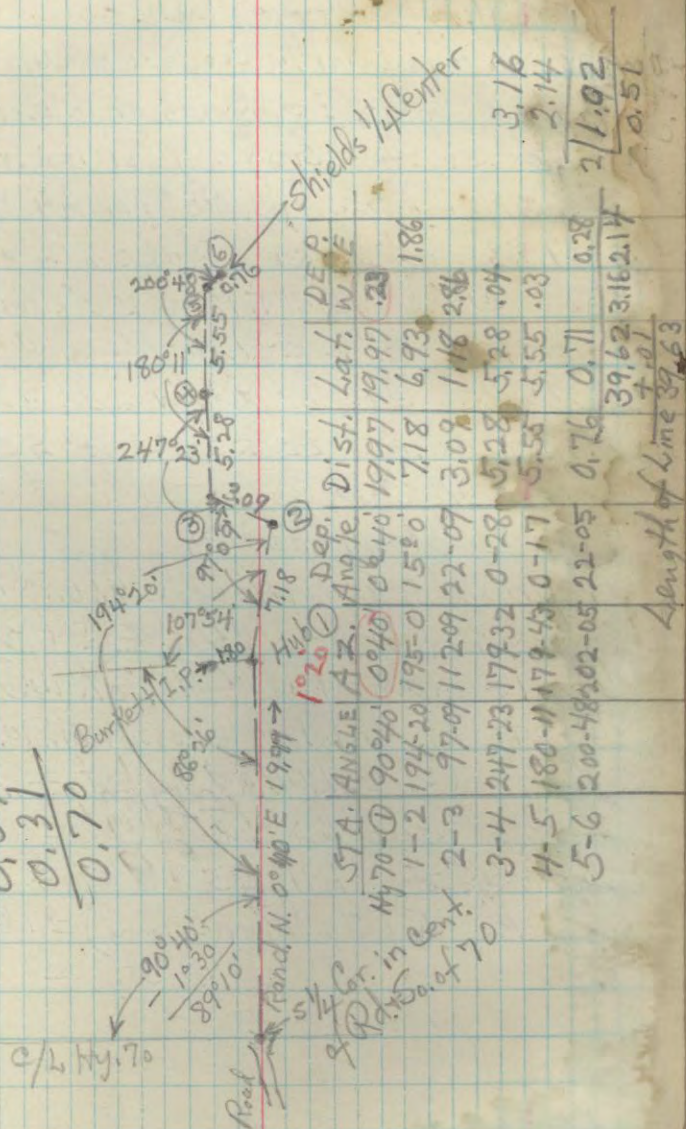 C/L Hy. 70
90°40'
- 1°30
89°10'
0.31
0.70
Road
Rand. N. 0°40'E 19.97 →
S 1/4 Cor. in Cen.
& Rd. So. of 70
88°26'
194°20'
107°54'
Burnett I.P.
130
Hub ①
1°20
7.18
②
97°09'
3.09
③
247°23'
5.28
④
180°11'
5.55
⑤
200°48'
0.76
⑥
Shields 1/4 Center
STA. ANGLE AZ. Dep. Angle Dist. Lat. DEP. W E
Hy 70-① 90°40' 0°40' 0°40' 19.97 19.97 .23
1-2 194-20 195-0 15°0' 7.18 6.93 1.86
2-3 97-09 112-09 22-09 3.09 1.18 2.86
3-4 247-23 179-32 0-28 5.28 5.28 .04
4-5 180-11 179-43 0-17 5.55 5.55 .03
5-6 200-48 202-05 22-05 0.76 0.71 0.28
39.62 3.16 2.14
+.01
Length of Line 39.63
3.16
2.14
2 | 1.02
0.51